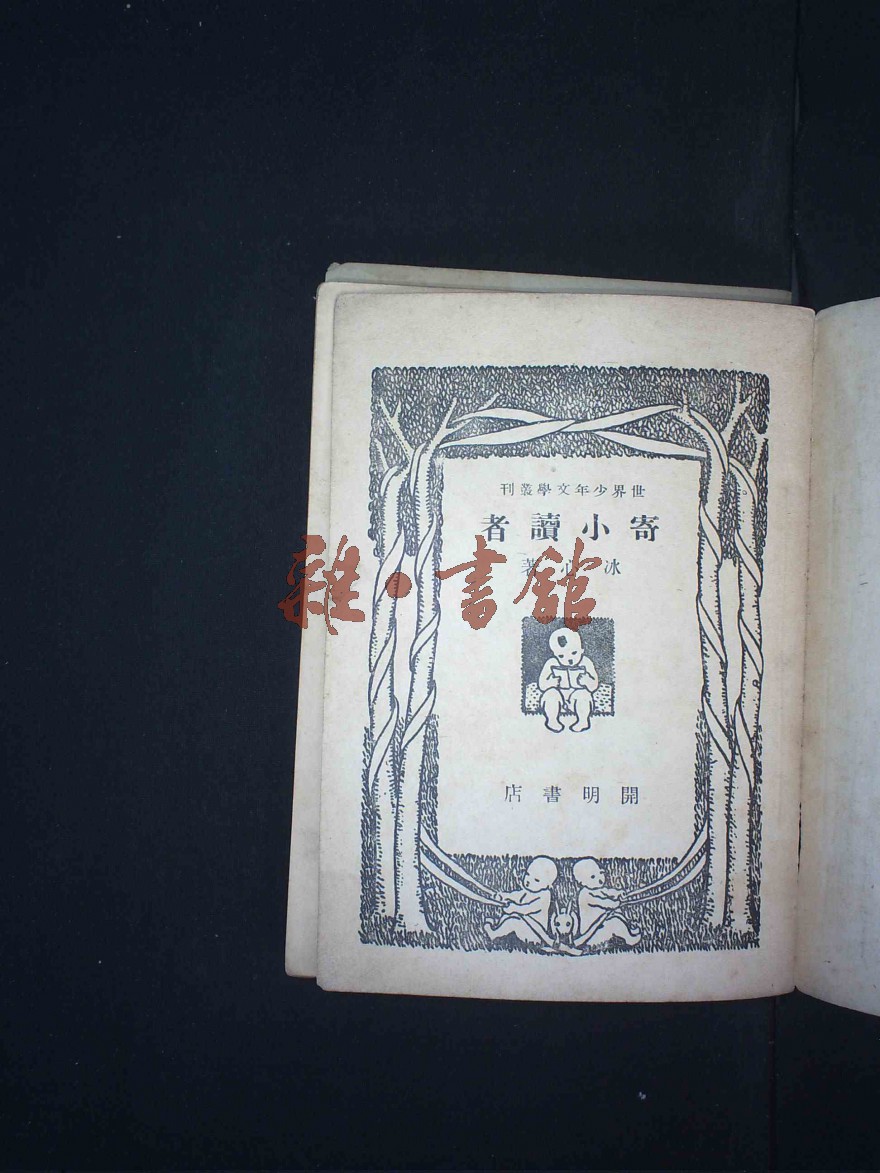 世界少年文學叢刊
寄小讀者
冰心著
雜·書館
開明書店